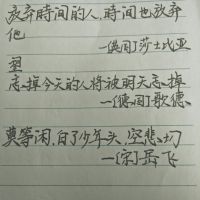 放弃时间的人,时间也放弃
他
—[英国]莎士比亚
忘掉今天的人将被明天忘掉
—[德国]歌德
莫等闲,白了少年头,空悲切
—[宋]岳飞